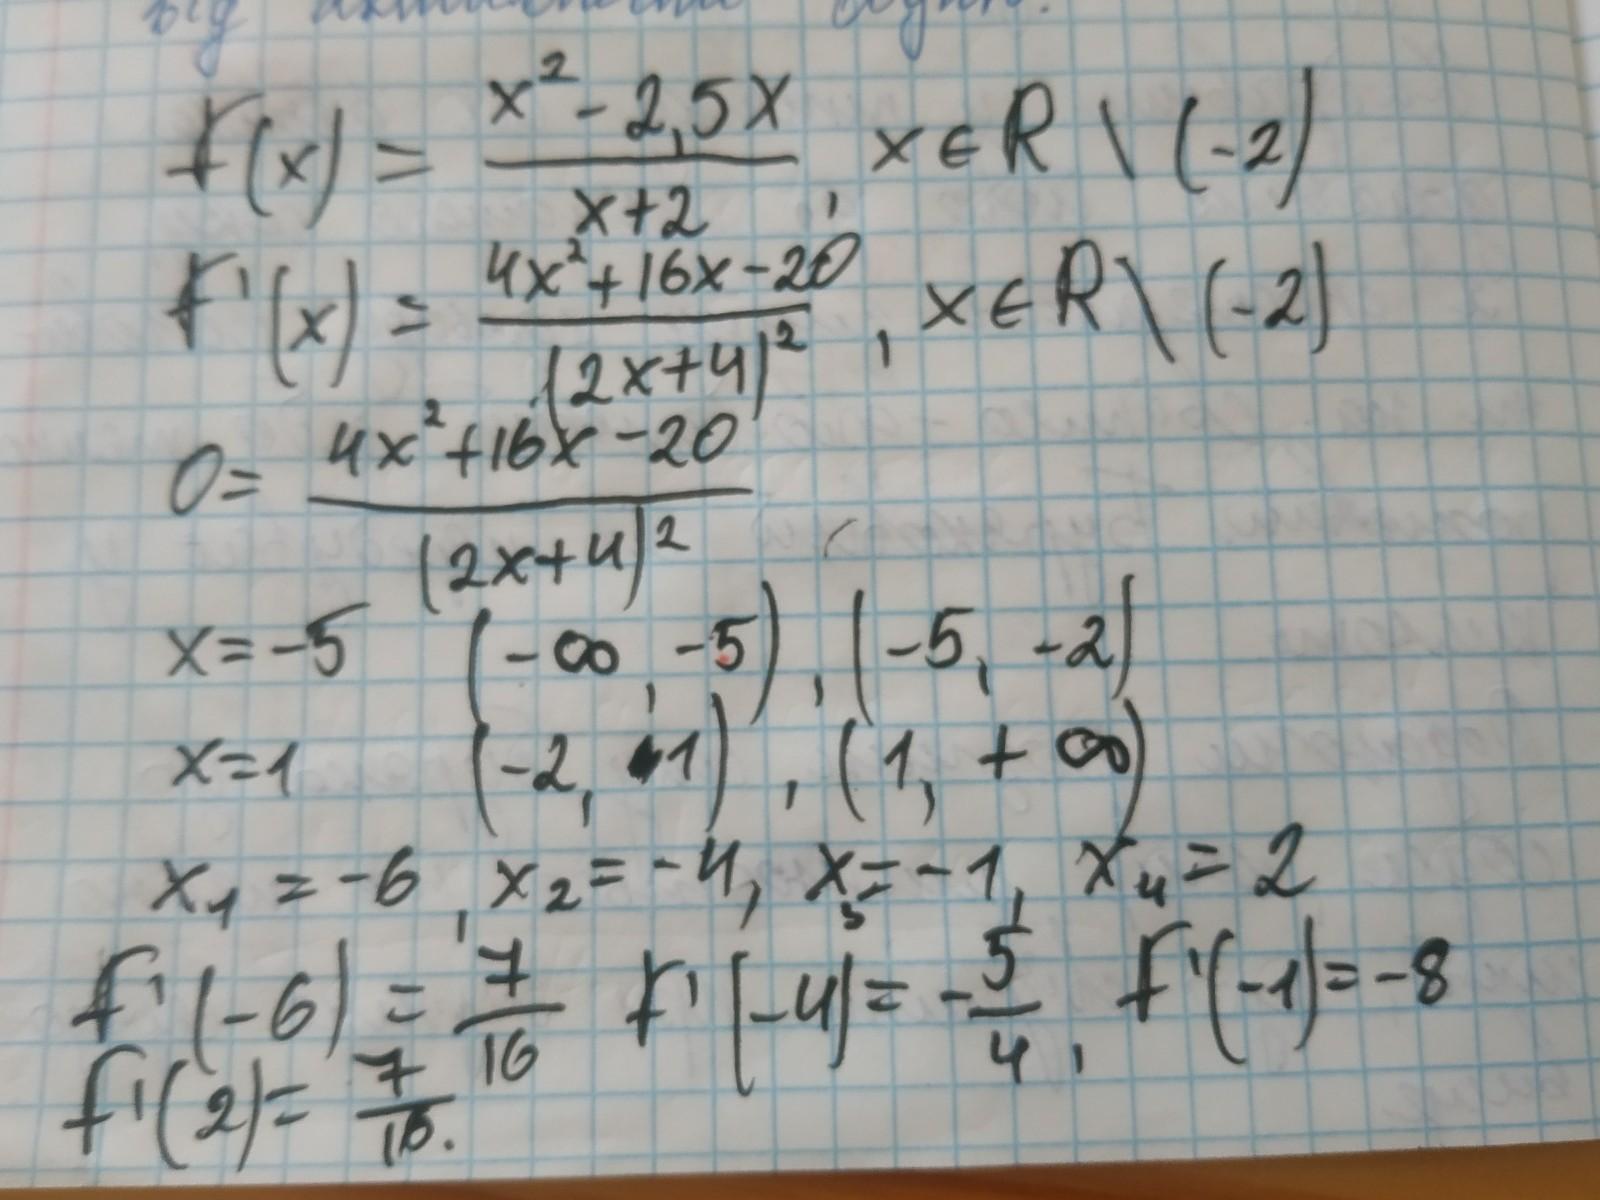 від активності водню.
f(x) = x² - 2,5x / x+2, x ∈ R \ (-2)
f'(x) = 4x² + 16x - 20 / (2x+4)², x ∈ R \ (-2)
0 = 4x² + 16x - 20 / (2x+4)²
x = -5 (-∞, -5), (-5, -2)
x = 1 (-2, 1), (1, +∞)
x₁ = -6, x₂ = -4, x₃ = -1, x₄ = 2
f'(-6) = 7/16 f'(-4) = -5/4, f'(-1) = -8
f'(2) = 7/16.